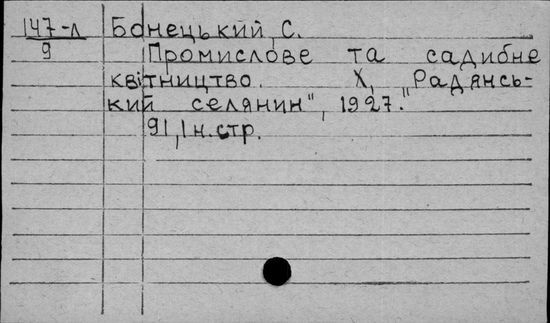 147-л Бонецький, С.
9 Промислове та садибне
квітництво. Х, „Радянсь-
кий селянин", 1927.
91, 1 н. стр.